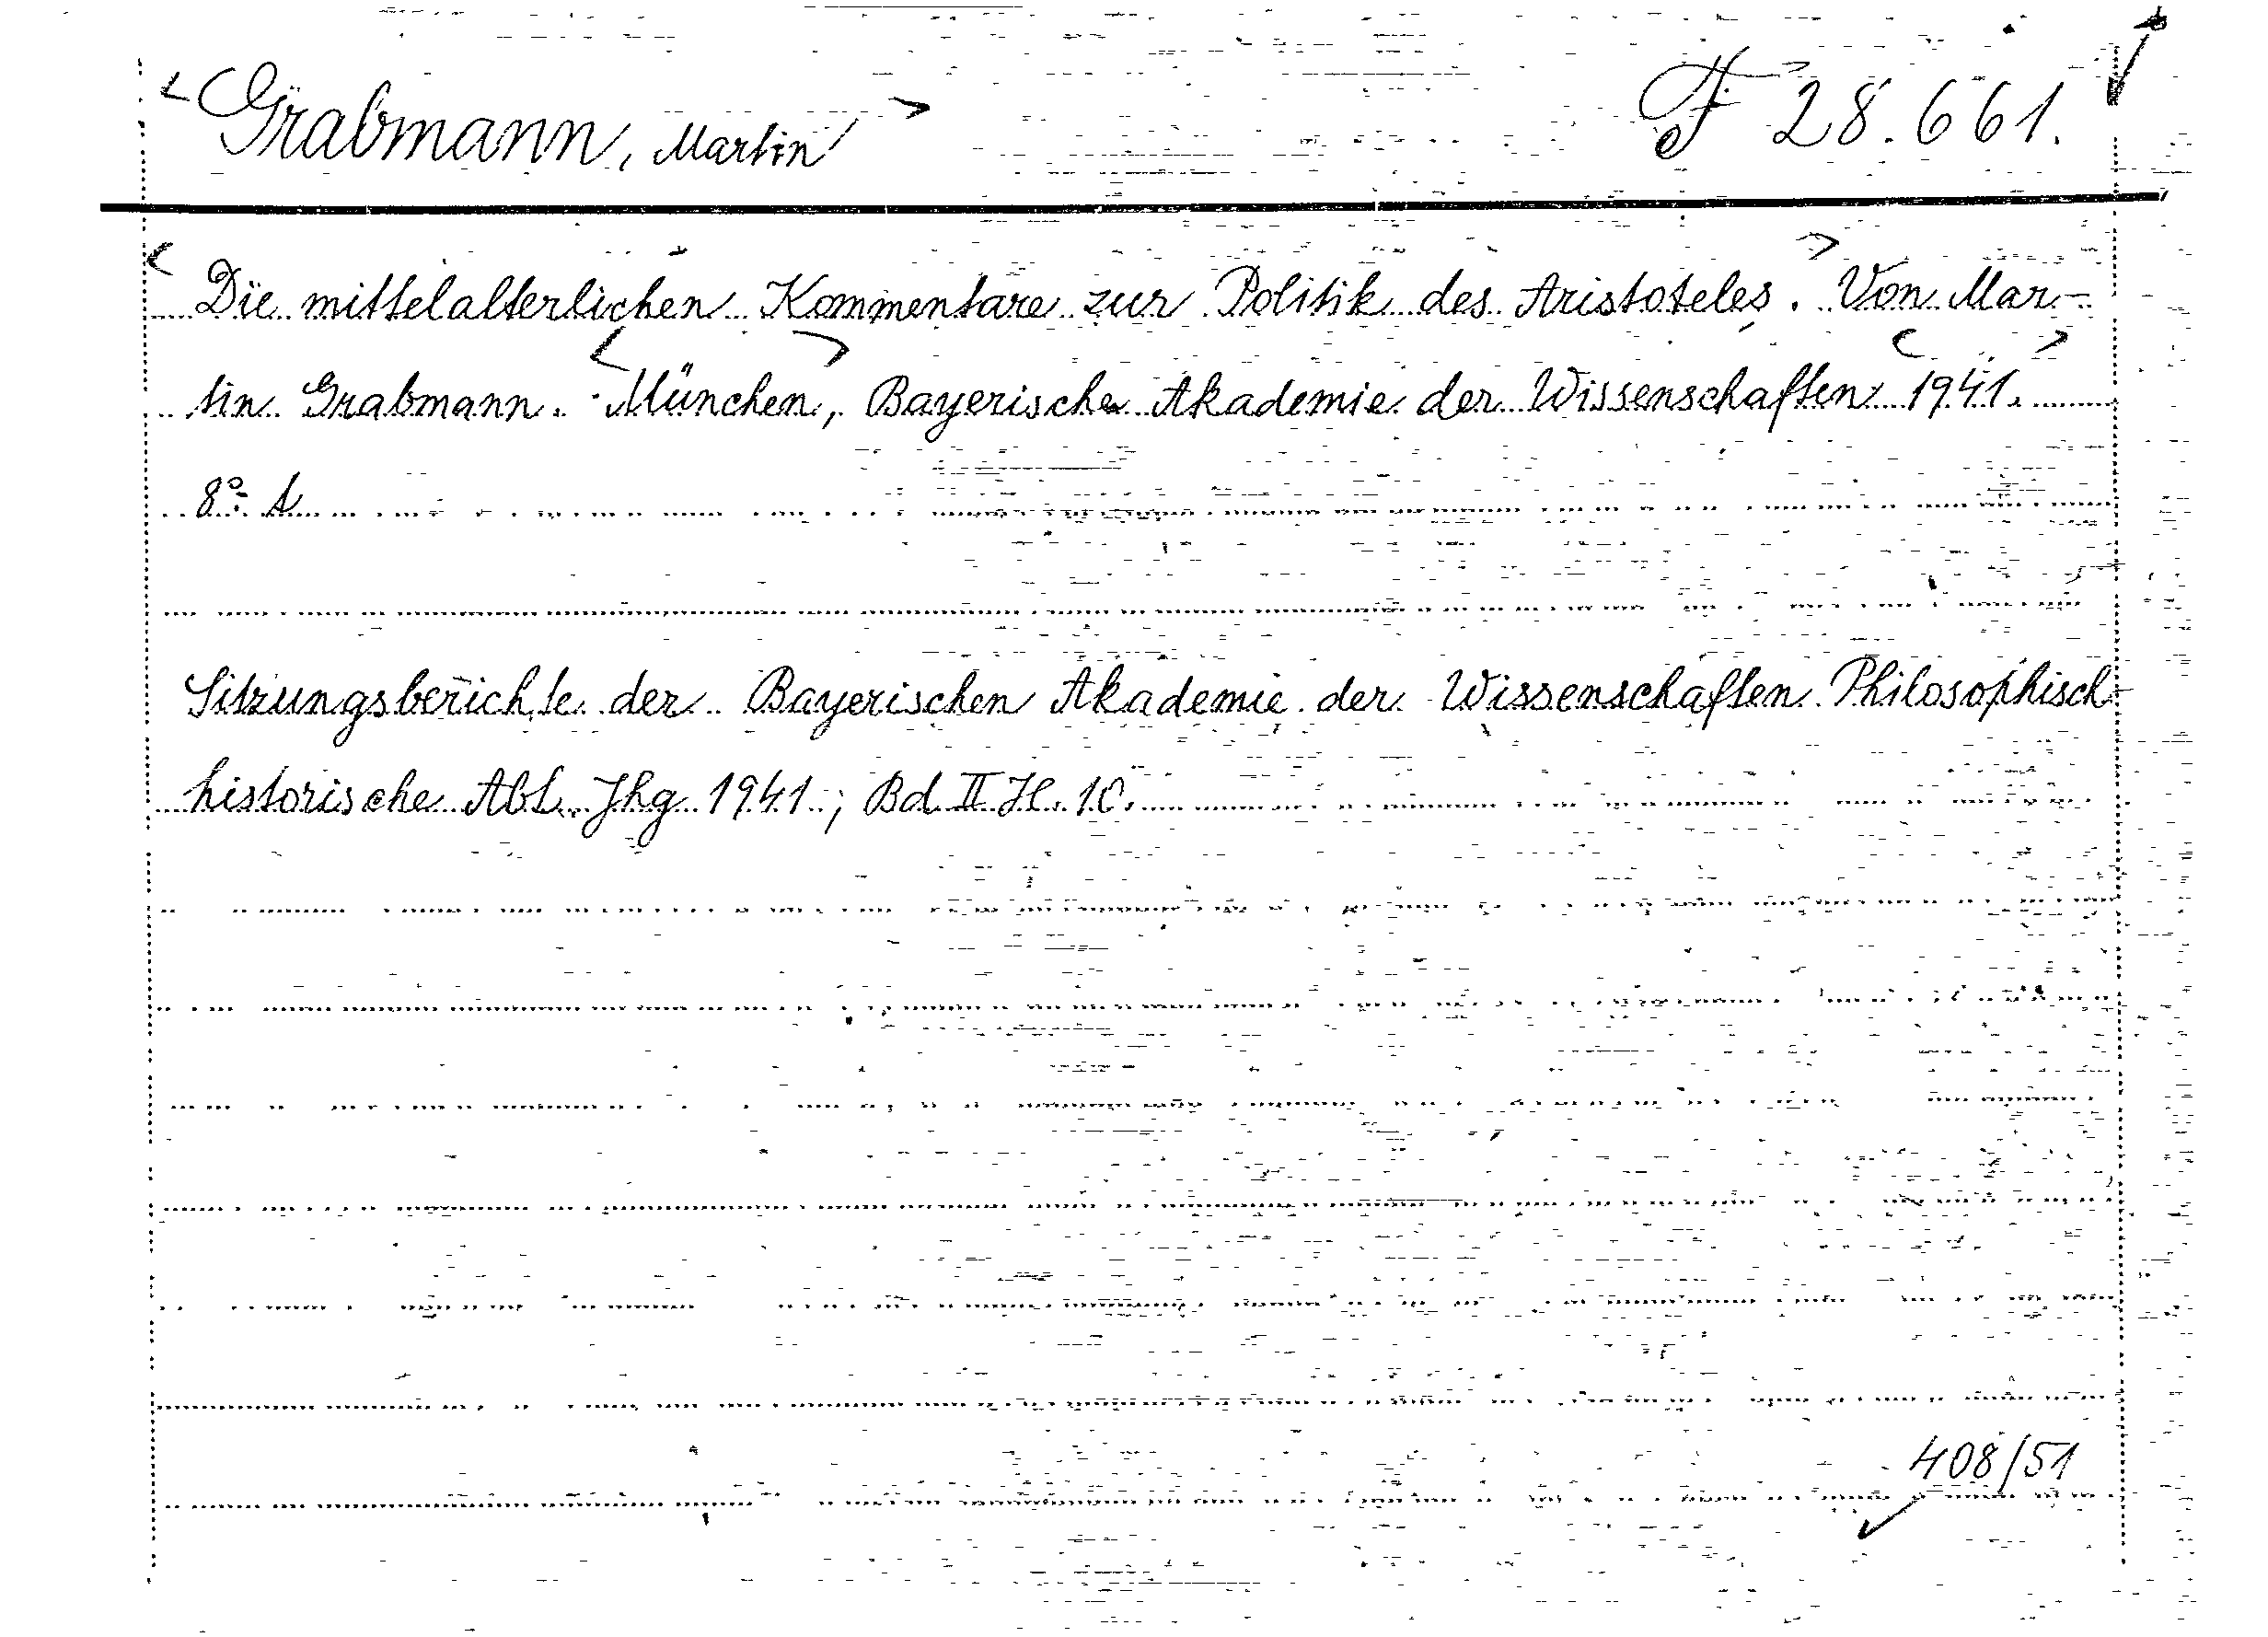 <Grabmann, Martin> F 28.661.
<Die mittelalterlichen Kommentare zur Politik des Aristoteles.> Von Mar-
tin Grabmann. <München>, Bayerische Akademie der Wissenschaften <1941>.
8°. A
Sitzungsberichte der Bayerischen Akademie der Wissenschaften. Philosophisch-
historische Abt. Jhg 1941; Bd II H. 10.
408/51